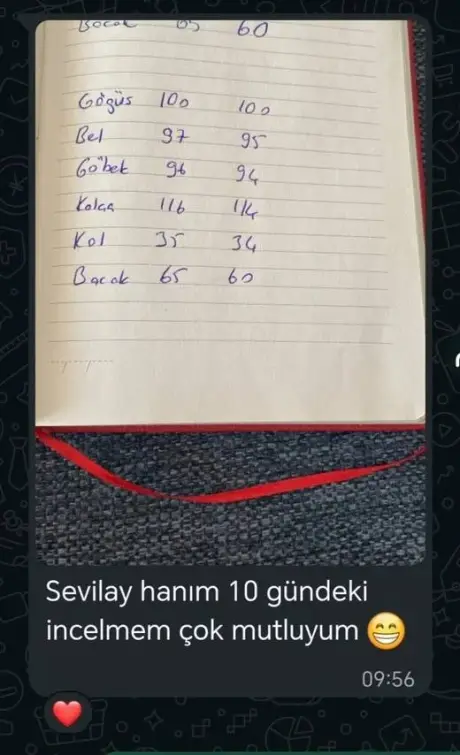 Bacak 65 60
Göğüs 100 100
Bel 97 95
Göbek 96 94
Kalça 116 114
Kol 35 34
Bacak 65 60
Sevilay hanım 10 gündeki
incelmem çok mutluyum 😁
09:56